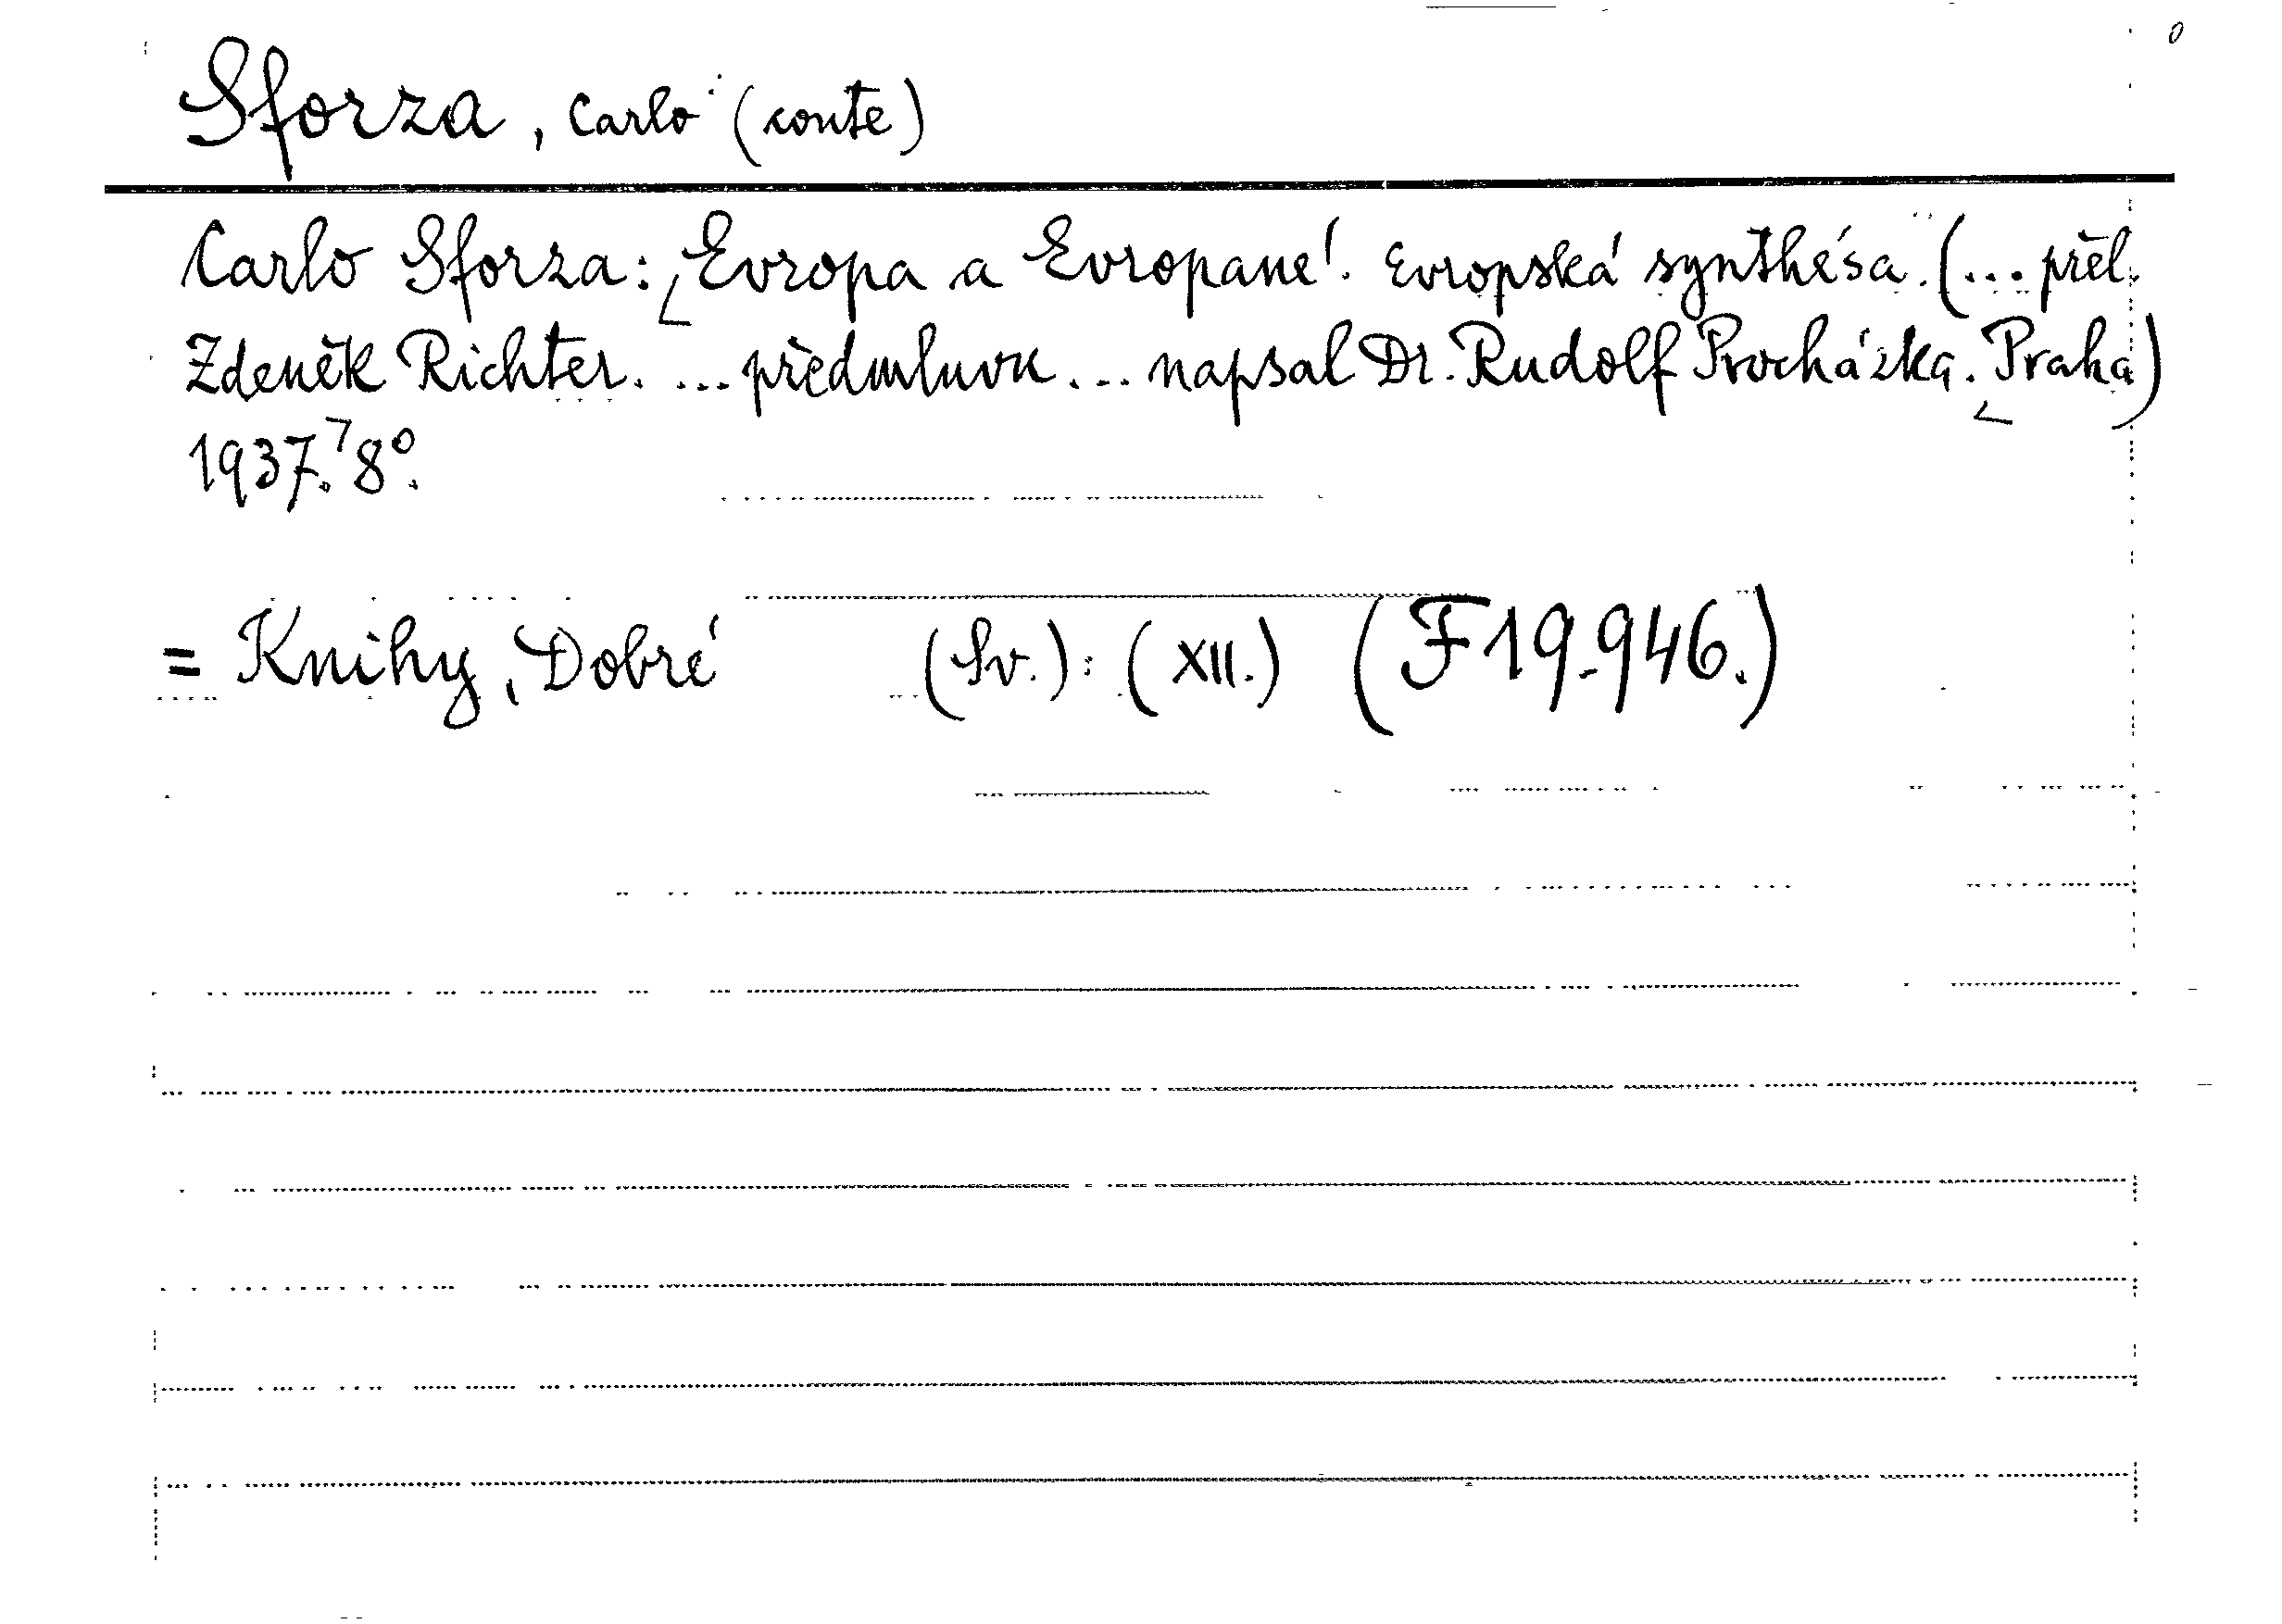 Sforza, Carlo (conte)
Carlo Sforza: Evropa a Evropané. Evropská synthésa. (... přel.
Zdeněk Richter. ... předmluvu ... napsal Dr. Rudolf Procházka. Praha)
1937. 8°.
= Knihy, Dobré (Sv.): (XII.) (F 19.946.)